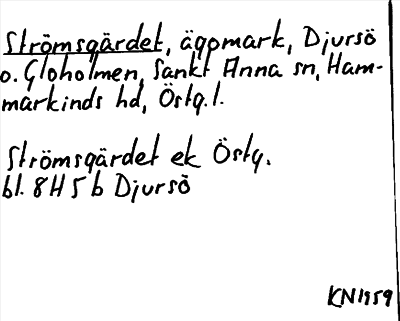 Strömsgärdet, ägomark, Djursö
o. Gloholmen, Sankt Anna sn, Ham-
markinds hd, Östg.l.
Strömsgärdet ek Östg.
bl. 8H 5b Djursö
KN1959